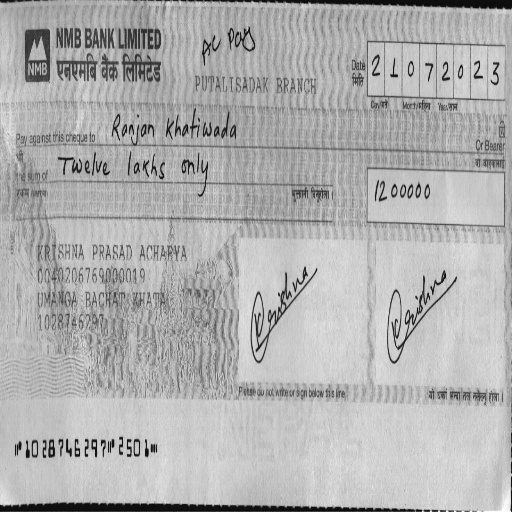 NMB BANK LIMITED
एनएमबि बैंक लिमिटेड
NMB
AC Pay
PUTALISADAK BRANCH
Date
मिति
2 1 0 7 2 0 2 3
Pay against this cheque to Ranjan Khatiwada
Or Bearer
the sum of Twelve lakhs only
1200000
KRISHNA PRASAD ACHARYA
0040206769000019
UMANGA BACHAT KHATA
1028746297
Krishna
Krishna
Please do not write or sign below this line
⑈1028746297⑈2501⑈